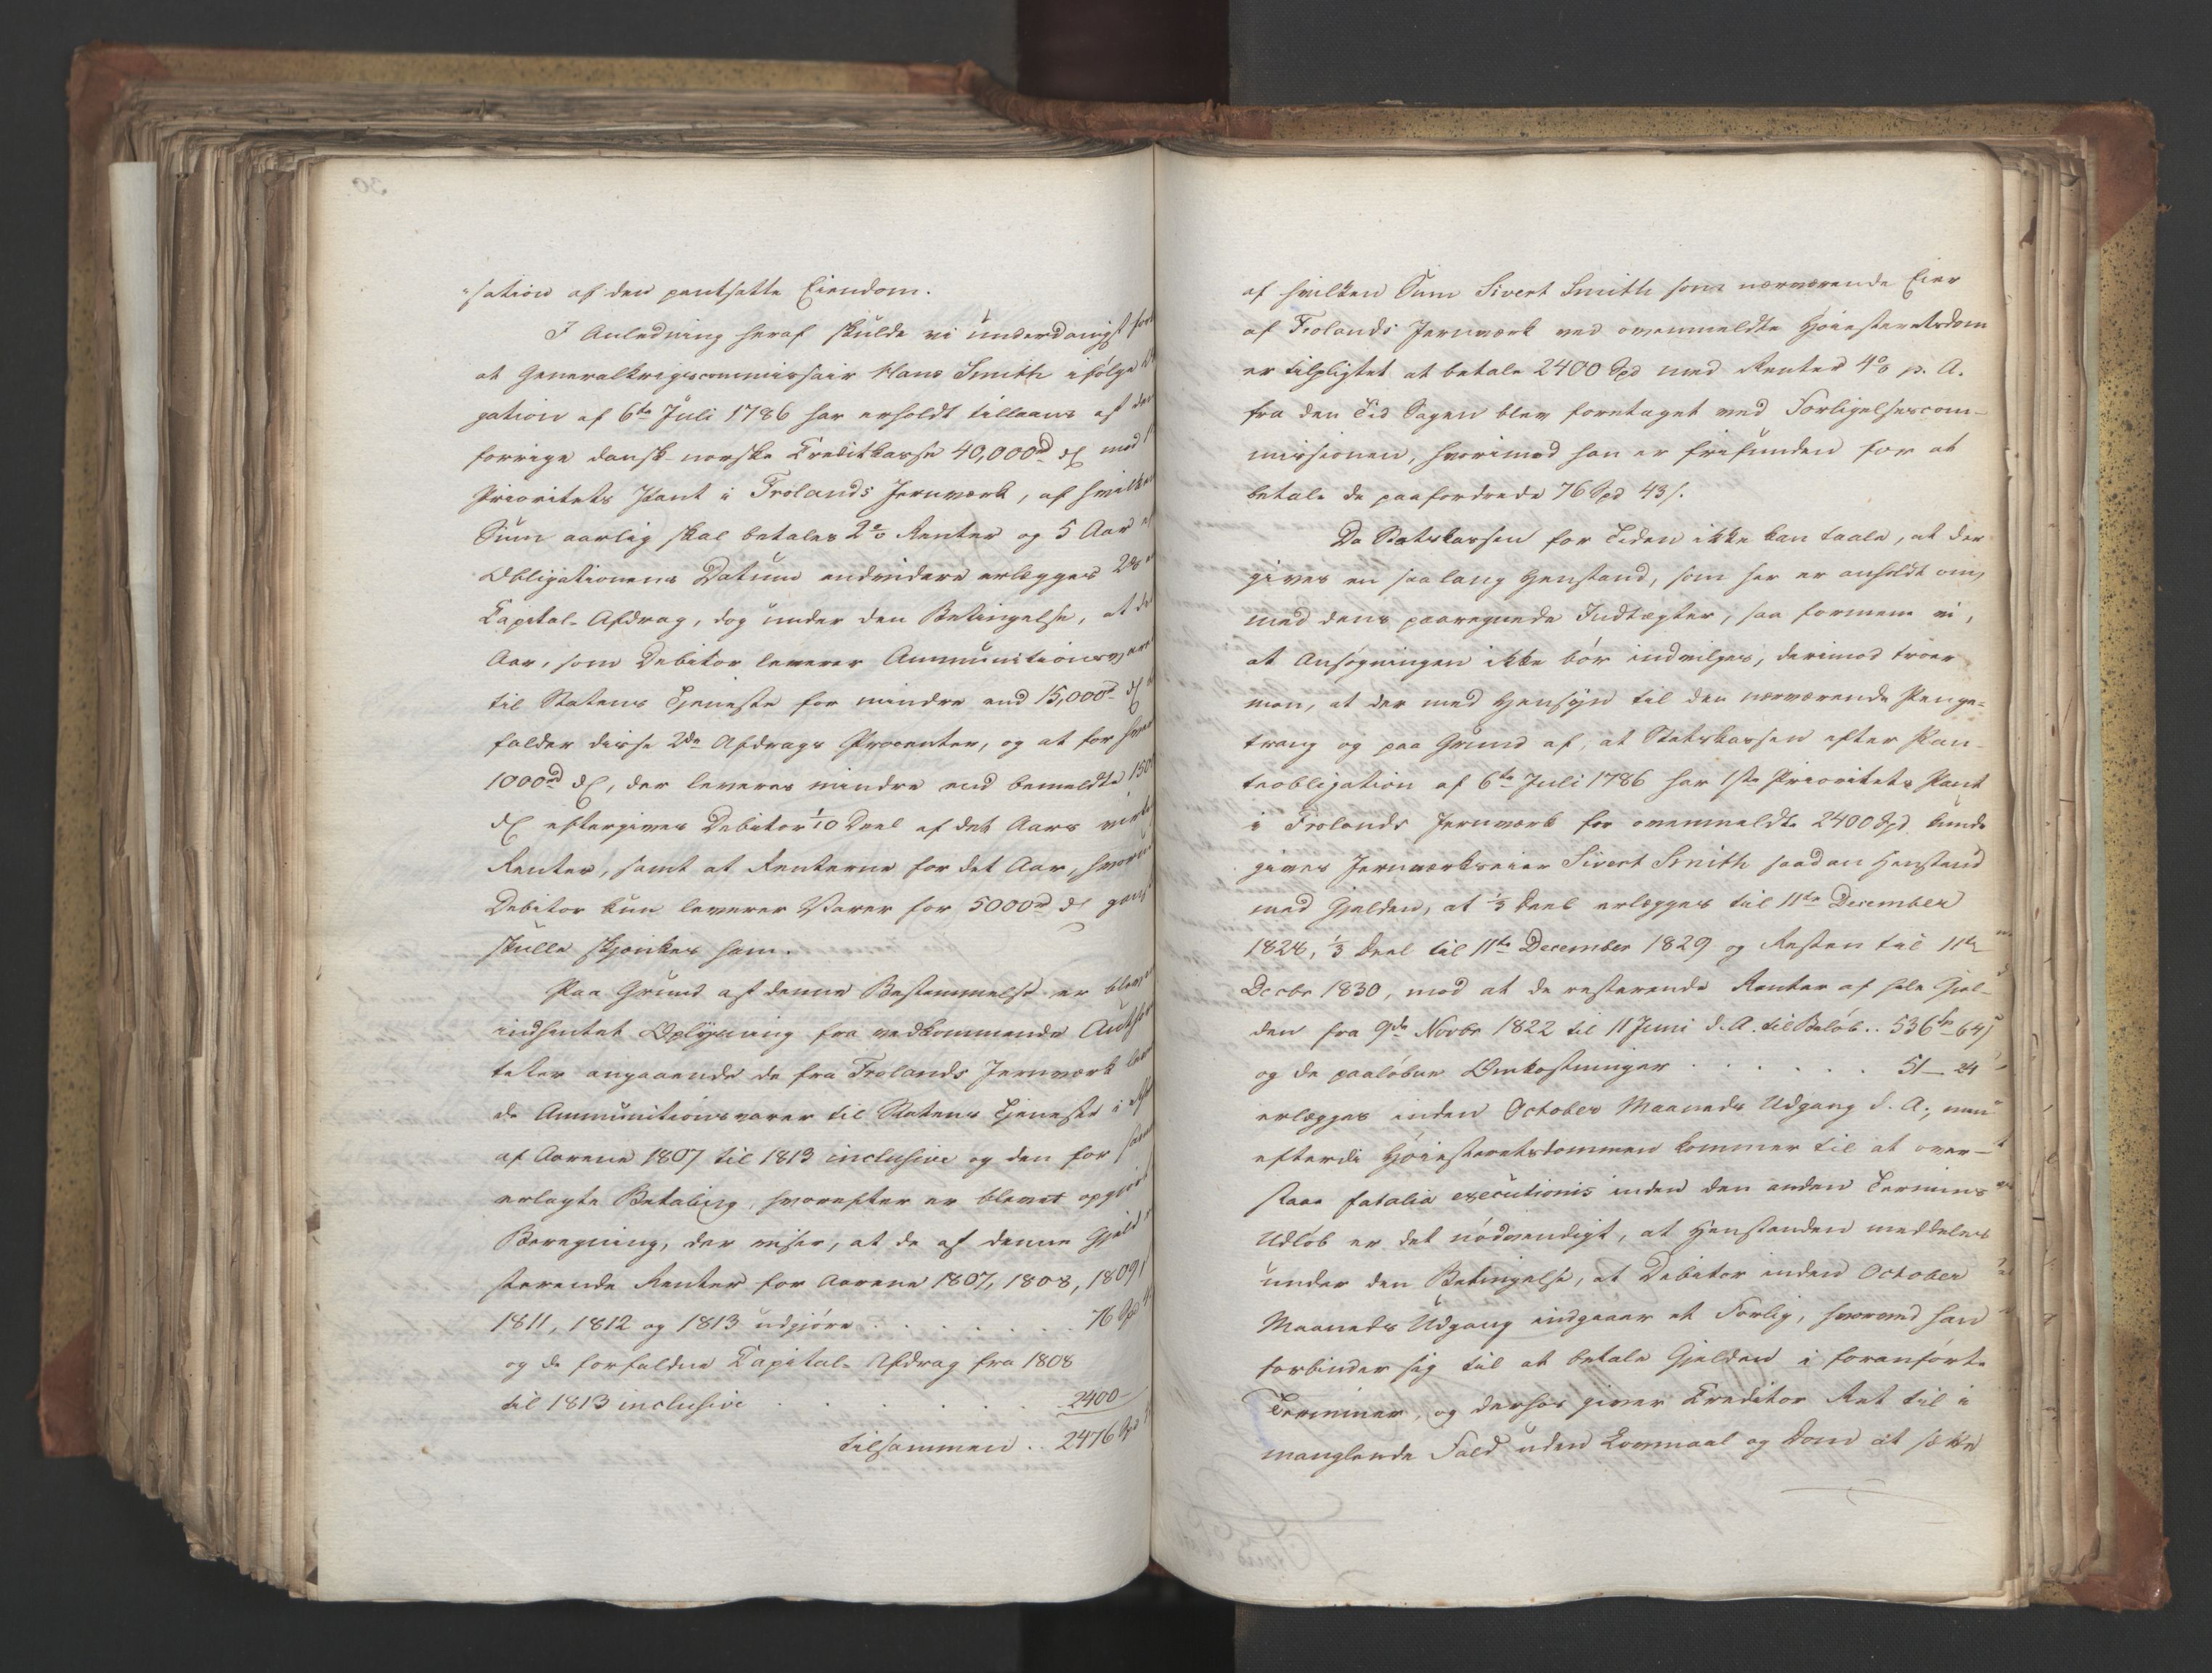 sation af den pantsatte Eiendom.
I Anledning heraf skulde vi underdanigst
at Generalkrigscommissair Hans Smith ifølge
gation af 6te Juli 1786 har erholdt tillaans af den
forrige dansk-norske Creditkasse 40,000rd dC mod
Prioritets Pant i Frolands Jernværk, af hvilken
Sum aarlig skal betales 2% Renter og 5 Aar
Obligationens Datum endvidere erlægges 2%
Capital-Afdrag, dog under den Betingelse, at de
Aar, som Debitor leverer Ammunitionsvarer
til Statens Tjeneste for mindre end 15,000rd dC
falder disse 2de Afdrags Procenter, og at for hver
1000rd dC, der leveres mindre end bemeldte
dC eftergives Debitor 1/10 Deel af det Aars
Renter, samt at Renterne for det Aar, hvori
Debitor kun leverer Varer for 5000rd dC
skulle skjænkes ham.
Paa Grund af denne Bestemmelse er blevet
indhentet Oplysning fra vedkommende
teter angaaende de fra Frolands Jernværk
de Ammunitionsvarer til Statens Tjeneste i
af Aarene 1807 til 1813 inclusive og den for
erlagte Betaling, hvorefter er blevet opgjort
Beregning, der viser, at de af denne Gjeld
sterende Renter for Aarene 1807, 1808, 1809
1811, 1812 og 1813 udgjøre . . . . . . . 76 Spd
og de forfaldne Capital-Afdrag fra 1808
til 1813 inclusive . . . . . . 2400 —
tilsammen . . 2476 Spd
af hvilken Sum Sivert Smith som nærværende Eier
af Frolands Jernværk ved ovenmeldte Høiesteretsdom
er tilpligtet at betale 2400 Spd med Renter 4% p. A.
fra den Tid Sagen blev foretaget ved Forligelsescom-
missionen, hvorimod han er frifunden for at
betale de paafordrede 76 Spd 43 s.
Da Statskassen for Tiden ikke kan taale, at der
gives en saa lang Henstand, som her er anholdt om,
med dens paaregnede Indtægter, saa formene vi,
at Ansøgningen ikke bør indvilges, derimod troer
man, at der med Hensyn til den nærværende Penge-
trang og paa Grund af, at Statskassen efter Pan-
teobligation af 6te Juli 1786 har 1ste Prioritets Pant
i Frolands Jernværk for ovenmeldte 2400 Spd kunde
gives Jernværkseier Sivert Smith saadan Henstand
med Gjelden, at 1/3 Deel erlægges til 11te December
1828, 1/3 Deel til 11te December 1829 og Resten til 11te
Decbr 1830, mod at de resterende Renter af hele Gjel-
den fra 9de Novbr 1822 til 11 Juni d. A. til Beløb . . 536 Sp 64 s
og de paaløbne Omkostninger . . . . . . 51 — 24
erlægges inden October Maaneds Udgang d. A.; men
efterdi Høiesteretsdommen kommer til at over-
staae fatalia executionis inden den anden Termins
Udløb er det nødvendigt, at Henstanden meddeles
under den Betingelse, at Debitor inden October
Maaneds Udgang indgaaer et Forlig, hvorved han
forbinder sig til at betale Gjelden i foranførte
Terminer, og derhos giver Creditor Ret til i
manglende Fald uden Lovmaal og Dom at søke